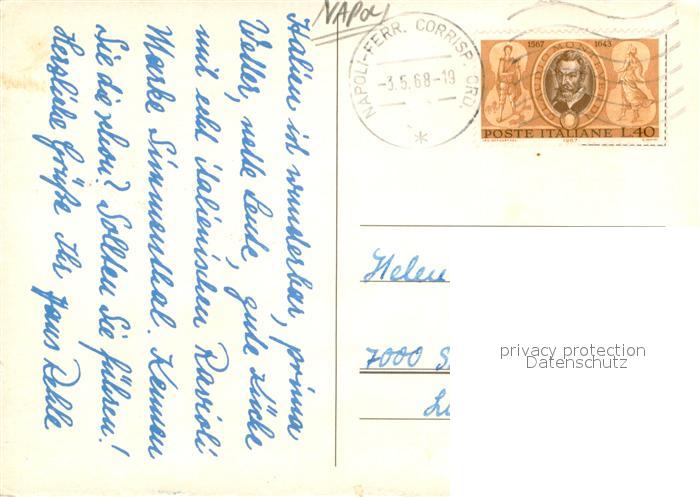 NAPOLI
NAPOLI-FERR. CORRISP. ORD.
-3.5.68-19
1567 1643
CLAUDIO MONTEVERDI
POSTE ITALIANE L.40
1967
Italien ist wunderbar, prima
Wetter, nette Leute, gute Küche
mit echt italienischen Ravioli
Marke Simmenthal. Kennen
Sie die schon? Sollten Sie führen!
Herzliche Grüße Ihr Hans Rehle
Helen
7000 S
privacy protection
Datenschutz